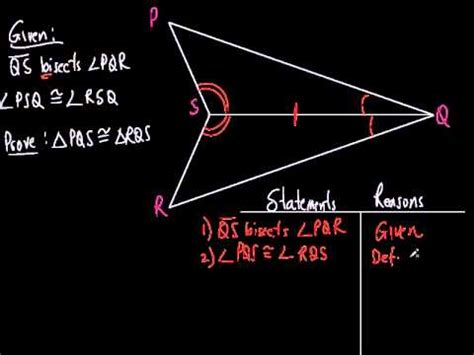 Given:
QS bisects ∠PQR
∠PSQ ≅ ∠RSQ
Prove: △PQS ≅ △RQS
P
S
Q
R
Statements Reasons
1) QS bisects ∠PQR Given
2) ∠PQS ≅ ∠RQS Def.